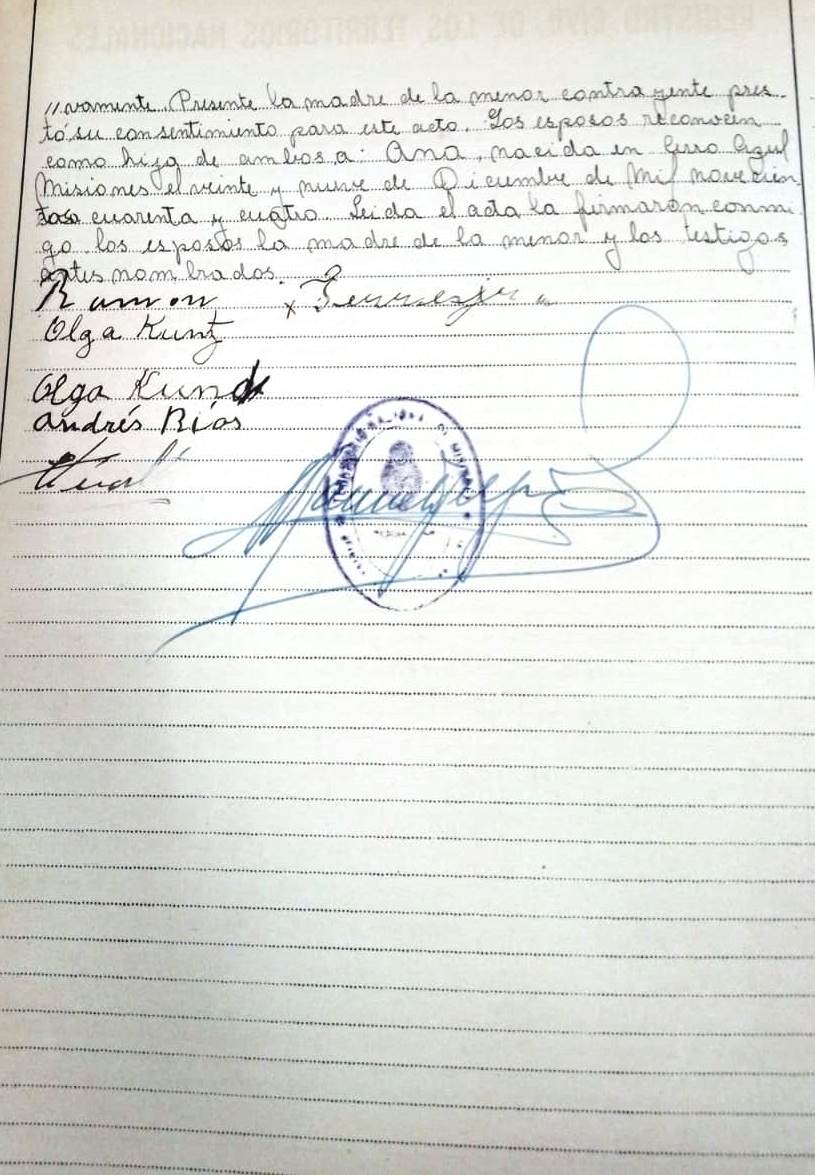 REGISTRO CIVIL DE LOS TERRITORIOS NACIONALES
//vamente. Presente la madre de la menor contrayente pres-
tó su consentimiento para este acto. Los esposos reconocen
como hija de ambos a: Ana, nacida en Cerro Azul
Misiones el veinte y nueve de Diciembre de Mil novecien
tos cuarenta y cuatro. Leida el acta la firmarón conmi
go los esposos la madre de la menor y los testigos
antes nombrados.
Ramon x Ferreyra
Olga Kunz
Olga Kund
andrés Ríos